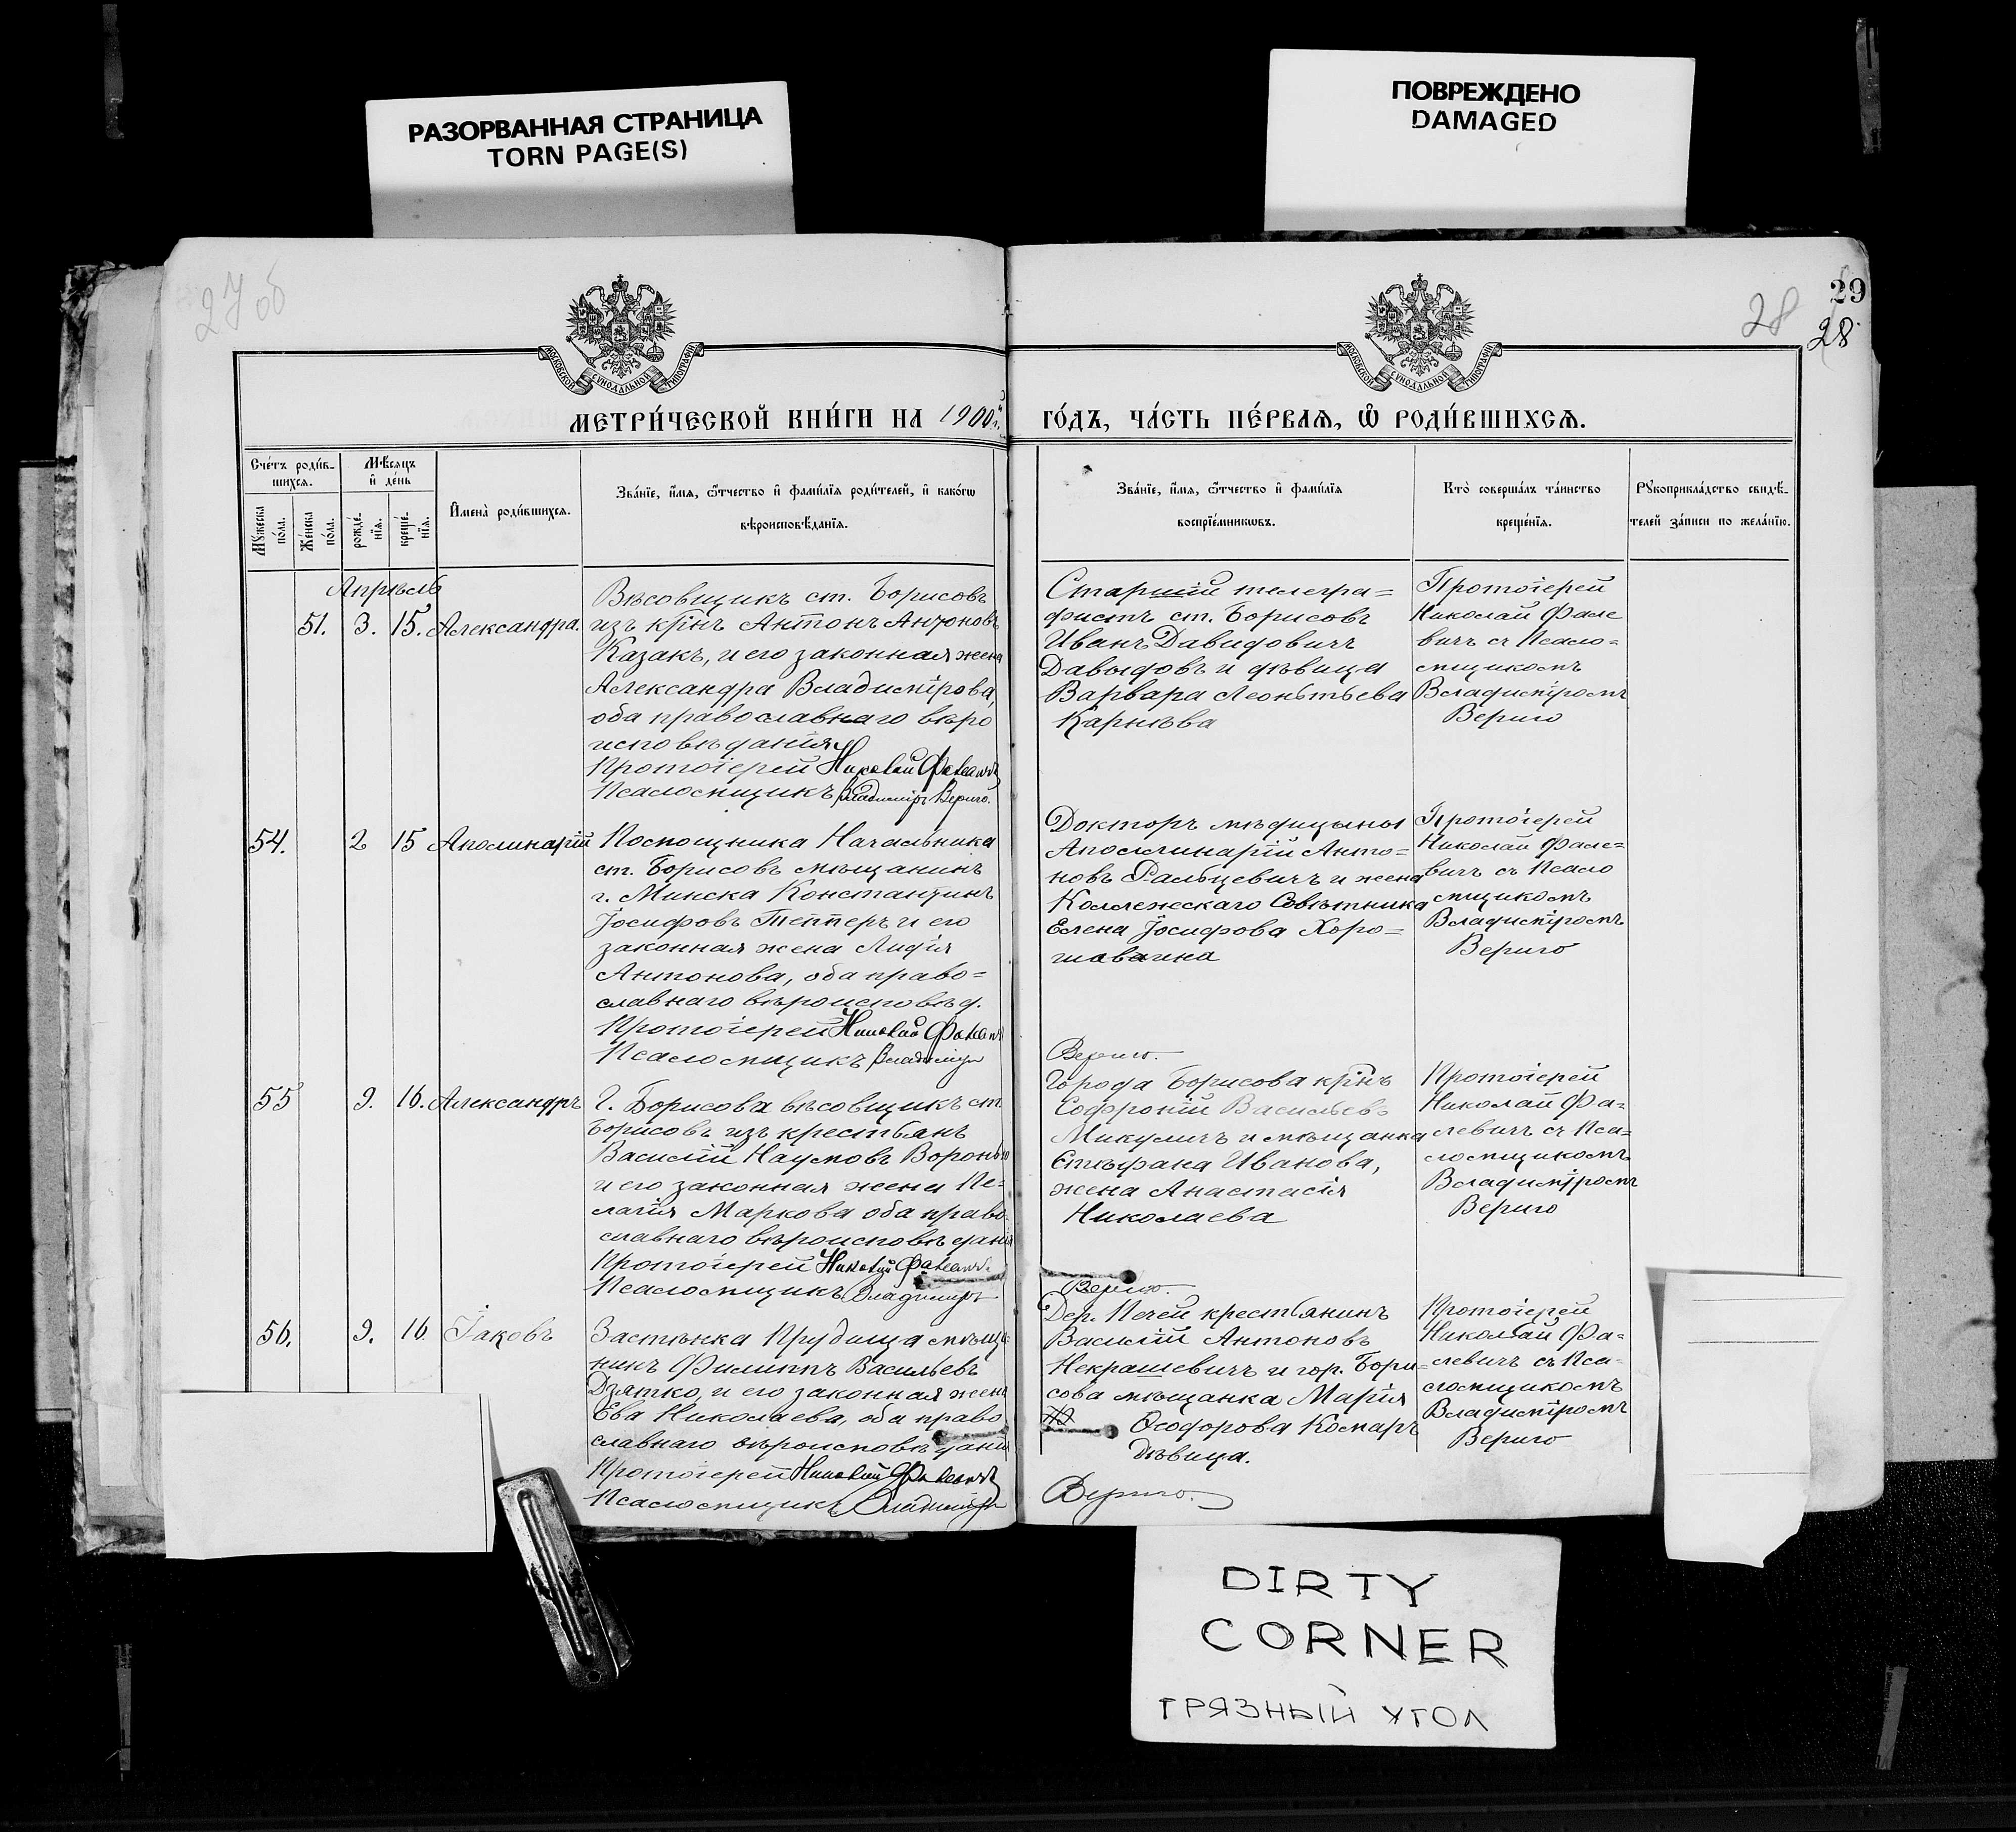 РАЗОРВАННАЯ СТРАНИЦА
TORN PAGE(S)
ПОВРЕЖДЕНО
DAMAGED
27 об
28
29
28
МОСКОВСКОЙ СѴНОДАЛЬНОЙ ТИПОГРАФІИ
МОСКОВСКОЙ СѴНОДАЛЬНОЙ ТИПОГРАФІИ
МЕТРИ́ЧЕСКОЙ КНИ́ГИ НА 1900й
ГО́ДЪ, ЧА́СТЬ ПЕ́РВАѦ, Ѽ РОДИ́ВШИХСѦ.
Сче́тъ роди́в-
шихся.
Мѣ́сяцъ
и҆ де́нь
Мꙋ́жеска
по́ла.
Же́нска
по́ла.
рожде́-
нїя.
креще́-
нїя.
И҆мена̀ роди́вшихся.
Зва́нїе, и҆́мя, ѻ҆́тчество и҆ фами́лїя роди́телей, и҆ како́гѡ
вѣроисповѣ́данїя.
Зва́нїе, и҆́мя, ѻ҆́тчество и҆ фами́лїя
воспрїе́мникѡвъ.
Кто̀ соверша́лъ та́инство
креще́нїя.
Рꙋкоприкла́дство свидѣ́-
телей за́писи по жела́нїю.
Апрѣль
51. 3. 15. Александра.
Вѣсовщикъ ст. Борисовъ
изъ крⷭнъ Антонъ Антоновъ
Казакъ, и его законная жена
Александра Владимірова,
оба православнаго вѣро
исповѣданія
Протоіерей Николай Фалевичъ
Псаломщикъ Владиміръ Вериго.
Старшій телегра=
фистъ ст. Борисовъ
Иванъ Давидовичъ
Давыдовъ и дѣвица
Варвара Леонтьева
Карнѣва
Протоіерей
Николай Фале
вичъ съ Псало=
мщикомъ
Владиміромъ
Вериго
54. 2 15 Аполинарій
Помощника Начальника
ст. Борисовъ мѣщанинъ
г. Минска Константинъ
Іосифовъ Теттеръ и его
законная жена Лидія
Антонова, оба право=
славнаго вѣроисповѣд.
Протоіерей Николай Фалевичъ
Псаломщикъ Владиміръ
Докторъ мѣдицыны
Аполлинарій Анто=
новъ Фальцевичъ и жена
Коллежскаго Совѣтника
Елена Іосифова Хоро=
шавина
Вериго.
Протоіерей
Николай Фале=
вичъ съ Псало
мщикомъ
Владиміромъ
Вериго
55 9. 16. Александръ
Г. Борисова вѣсовщикъ ст.
Борисовъ изъ крестьянъ
Василій Наумовъ Воронько
и его законная жена Пе=
лагія Маркова оба право
славнаго вѣроисповѣданія
Протоіерей Николай Фалевичъ
Псаломщикъ Владиміръ
Города Борисова крⷭнъ
Софроній Васильевъ
Микуличъ и мѣщанка
Стефана Иванова,
жена Анастасія
Николаева
Вериго.
Протоіерей
Николай Фа=
левичъ съ Пса=
ломщикомъ
Владиміромъ
Вериго
56. 9. 16 Іаковъ
Застѣнка Прудища мѣща
нинъ Филиппъ Васильевъ
Дзятко, и его законная жена
Ева Николаева, оба право
славнаго вѣроисповѣданія
Протоіерей Николай Фалевичъ
Псаломщикъ Владиміръ
Дер. Печей крестьянинъ
Василій Антоновъ
Некрашевичъ и гор. Бори=
сова мѣщанка Марія
Ѳеодорова Комаръ
дѣвица.
Вериго.
Протоіерей
Николай Фа=
левичъ съ Пса-
ломщикомъ
Владиміромъ
Вериго
DIRTY
CORNER
ГРЯЗНЫЙ УГОЛ